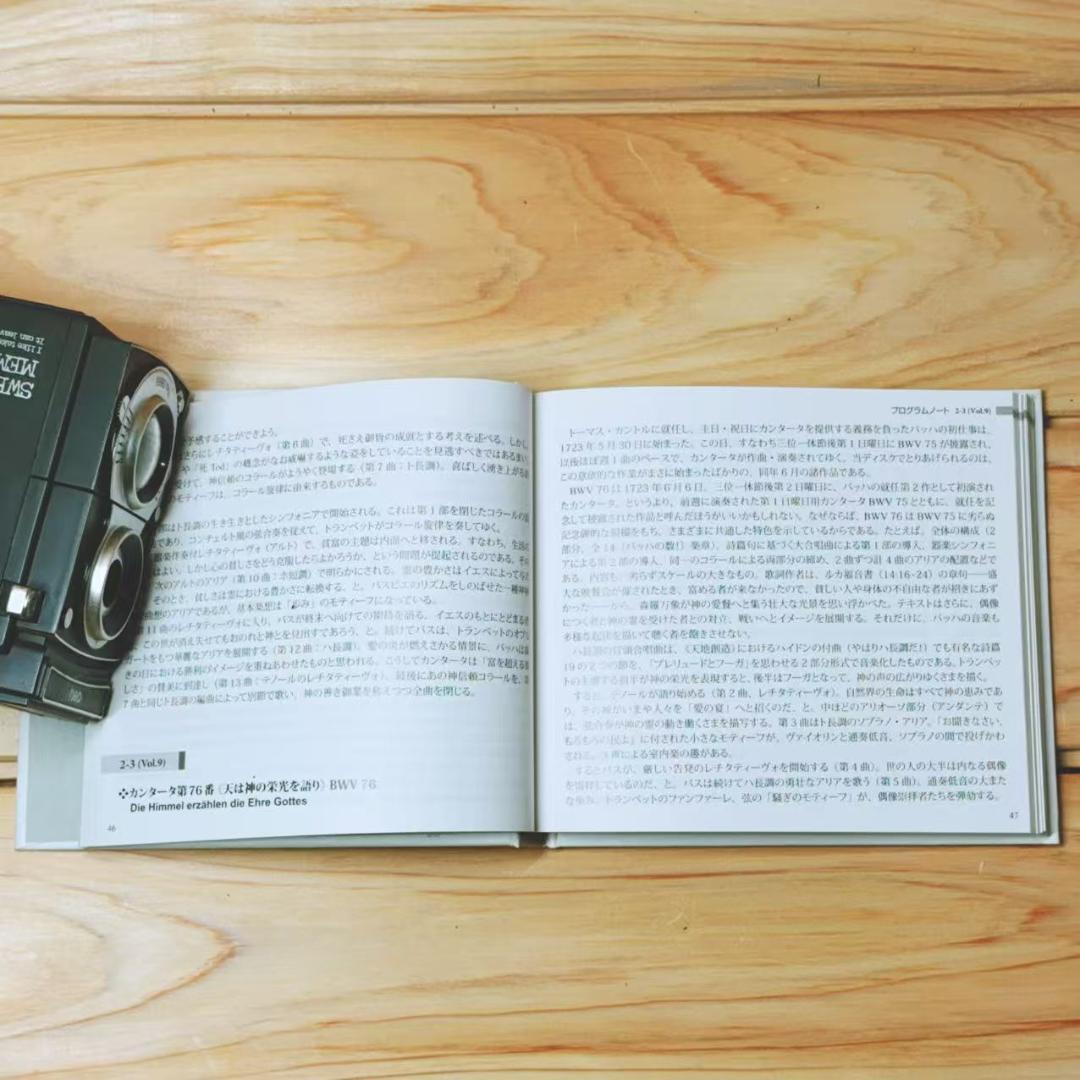 I like takin
It can leav
SWE
MEM
を予感することができよう。
さらにレチタティーヴォ（第6曲）で、死さえ御旨の成就とする考えを述べる。しかし
や「死 Tod」の概念がなお威嚇するような姿をしていることを見逃すべきではあるまい
受けて、神信頼のコラールがようやく登場する（第7曲：ト長調）。喜ばしく湧き上がる
のモティーフは、コラール旋律に由来するものである。
部はト長調の生き生きとしたシンフォニアで開始される。これは第1部を閉じたコラールの
であり、コンチェルト風の弦合奏を従えて、トランペットがコラール旋律を奏してゆく。
楽奏付レチタティーヴォ（アルト）で、貧富の主題は内面へと移される。すなわち、生活の
はよい、しかし心の貧しさをどう克服したらよかろうか、という問題が提起されるのである。その
次のアルトのアリア（第10曲：ホ短調）で明らかにされる。霊の豊かさはイエスによって与
そのとき、貧しさは霊における豊かさに転換する、と。パスピエのリズムをしのばせた一種
想のアリアであるが、基本楽想は のモティーフになっている。
11曲のレチタティーヴォに入り、バスが終末へ向けての期待を語る。イエスのもとにとどまる者
、この世が消え失せてもおのれと神とを見出すであろう、と。続けてバスは、トランペットのオブ
ガートをもつ華麗なアリアを展開する（第12曲：ハ長調）。愛の炎が燃えさかる情景に、バッハは
きの日における勝利のイメージを重ねあわせたものと思われる。こうしてカンタータは「富を超える貧
しさ」の賛美に到達し（第13曲：テノールのレチタティーヴォ）、最後にあの神信頼コラールを、第
7曲と同じト長調の編曲によって別節で歌い、神の善き御業を称えつつ全曲を閉じる。
2-3 (Vol.9)
❖カンタータ第76番〈天は神の栄光を語り〉BWV 76
Die Himmel erzählen die Ehre Gottes
46
プログラムノート 2-3 (Vol.9)
トーマス・カントルに就任し、主日・祝日にカンタータを提供する義務を負ったバッハの初仕事は、
1723年5月30日に始まった。この日、すなわち三位一体節後第1日曜日にBWV 75が披露され、
以後ほぼ週1曲のペースで、カンタータが作曲・演奏されてゆく。当ディスクでとりあげられるのは、
この意欲的な作業がまさに始まったばかりの、同年6月の諸作品である。
BWV 76は1723年6月6日、三位一体節後第2日曜日に、バッハの就任第2作として初演され
たカンタータ。というより、前週に演奏された第1日曜日用カンタータBWV 75とともに、就任を記
念して披露された作品と呼んだほうがいいかもしれない。なぜならば、BWV 76はBWV 75に劣らぬ
記念碑的な規模をもち、さまざまに共通した特色を示しているからである。たとえば、全体の構成（2
部分、全14〔バッハの数！〕楽章）、詩篇句に基づく大合唱曲による第1部の導入、器楽シンフォニ
アによる第2部の導入、同一のコラールによる両部分の締め、2曲ずつ計4曲のアリアの配置などで
ある。内容も、劣らずスケールの大きなもの。歌詞作者は、ルカ福音書（14:16-24）の章句――盛
大な晩餐会が催されたとき、富める者が来なかったので、貧しい人や身体の不自由な者が招きにあず
かった――から、森羅万象が神の愛餐へと集う壮大な光景を思い浮かべた。テキストはさらに、偶像
につく者と神の霊を受けた者との対立、戦いへとイメージを展開する。それだけに、バッハの音楽も
多様な起伏を描いて聴く者を飽きさせない。
ハ長調の冒頭合唱曲は、《天地創造》におけるハイドンの付曲（やはりハ長調だ！）でも有名な詩篇
19の2つの節を、「プレリュードとフーガ」を思わせる2部分形式で音楽化したものである。トランペッ
トの主導する前半が神の栄光を表現すると、後半はフーガとなって、神の声の広がりゆくさまを描く。
すると、テノールが語り始める（第2曲、レチタティーヴォ）。自然界の生命はすべて神の恵みであ
り、その神がいまや人々を「愛の宴」へと招くのだ、と。中ほどのアリオーソ部分（アンダンテ）で
は、弦合奏が神の霊の動き働くさまを描写する。第3曲はト長調のソプラノ・アリア。「お聞きなさい、
もろもろの民よ」に付された小さなモティーフが、ヴァイオリンと通奏低音、ソプラノの間で投げかわ
される。3声による室内楽の趣がある。
するとバスが、厳しい告発のレチタティーヴォを開始する（第4曲）。世の人の大半は内なる偶像
を崇拝しているのだ、と。バスは続けてハ長調の勇壮なアリアを歌う（第5曲）。通奏低音の大また
な歩み、トランペットのファンファーレ、弦の「騒ぎのモティーフ」が、偶像崇拝者たちを弾劾する。
47